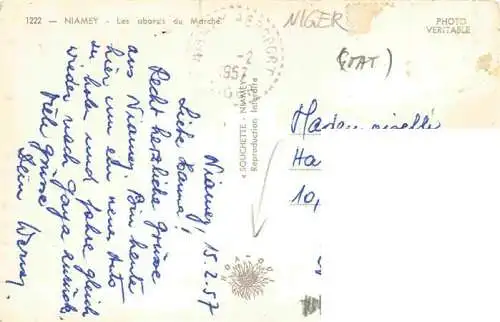 1222 — NIAMEY - Les abords du Marché
NIGER
PHOTO
VERITABLE
« SOUCHETTE - NIAMEY »
Reproduction Interdite
Niamey, 15.2.57
Liebe Hanna!
Recht herzliche Grüsse
aus Niamey. Bin heute
hier um ein neues Auto
zu holen und fahre gleich
wieder nach Gaya zurück.
Viele Grüsse
Dein Werner.
Ha
10,